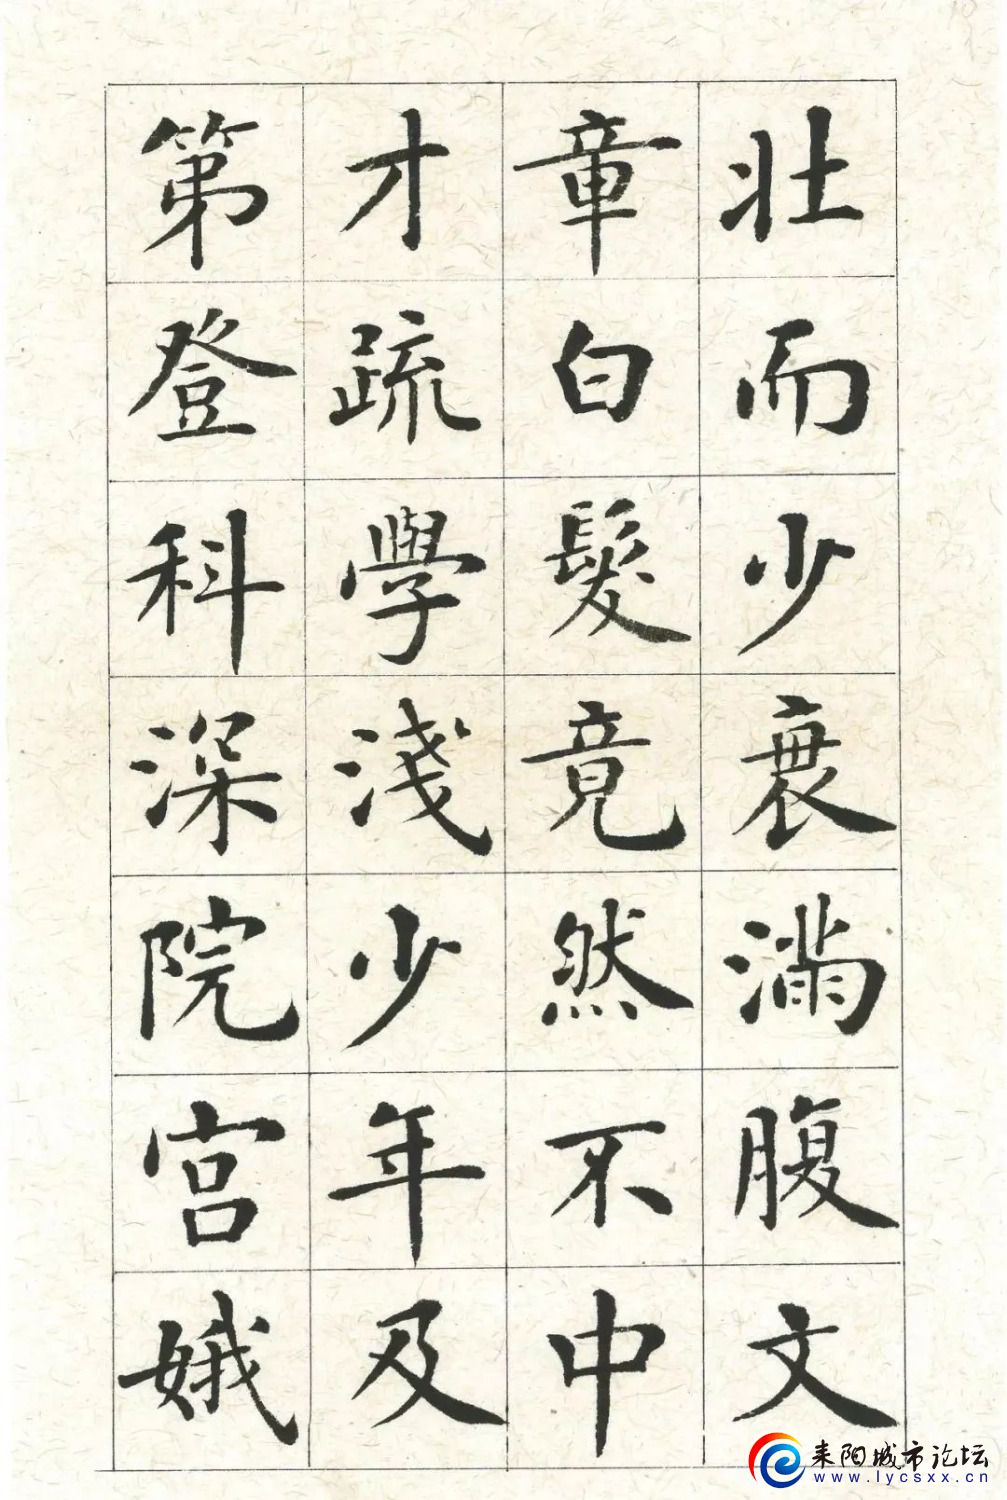 壮而少衰滿腹文
章白髮竟然不中
才疏學淺少年及
第登科深院宮娥
耒阳城市论坛
www.lycsxx.cn